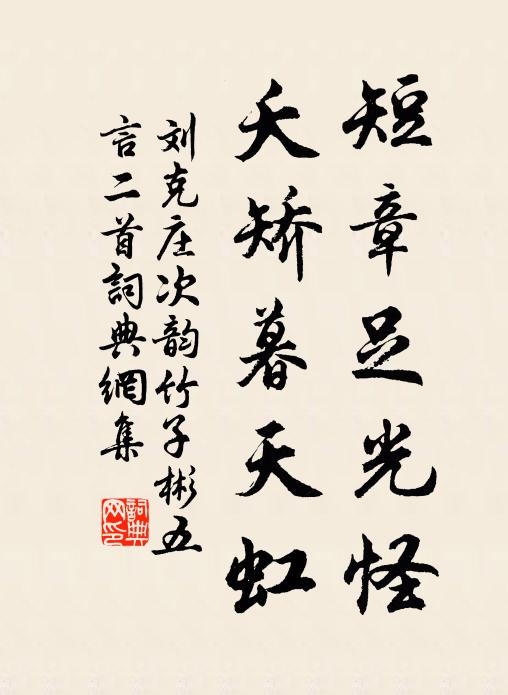 短章足光怪
夭矫暮天虹
刘克庄次韵竹子彬五
言二首詞典網集
詞典网印